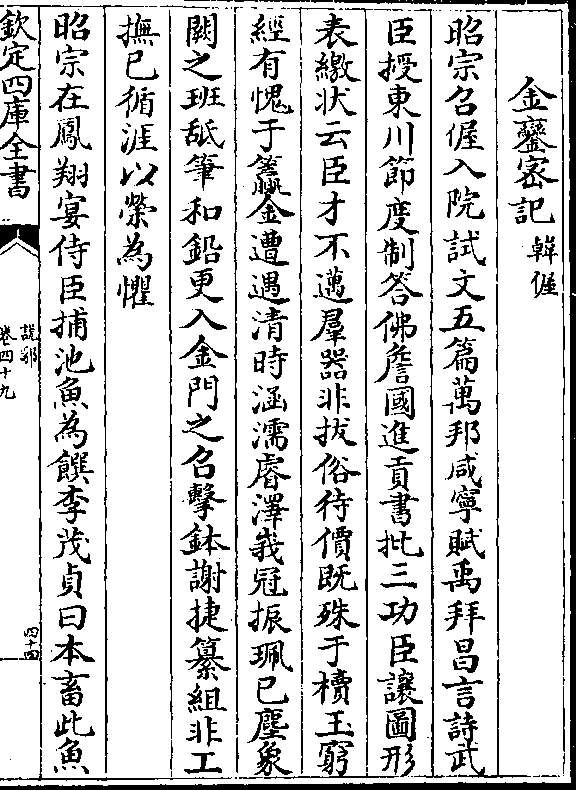 金鑾密記 韓偓
昭宗召偓入院試文五篇萬邦咸寧賦禹拜昌言詩武
臣授東川節度制答佛詹國進貢書批三功臣讓圖形
表繳狀云臣才不邁羣器非拔俗待價既殊于櫝玉窮
經有愧于籯金遭遇清時涵濡睿澤峩冠振珮已塵象
闕之班舐筆和鉛更入金門之召擊鉢謝捷纂組非工
撫已循涯以榮為懼
昭宗在鳳翔宴侍臣捕池魚為饌李茂貞曰本畜此魚
欽定四庫全書
說郛
卷四十九
四十四